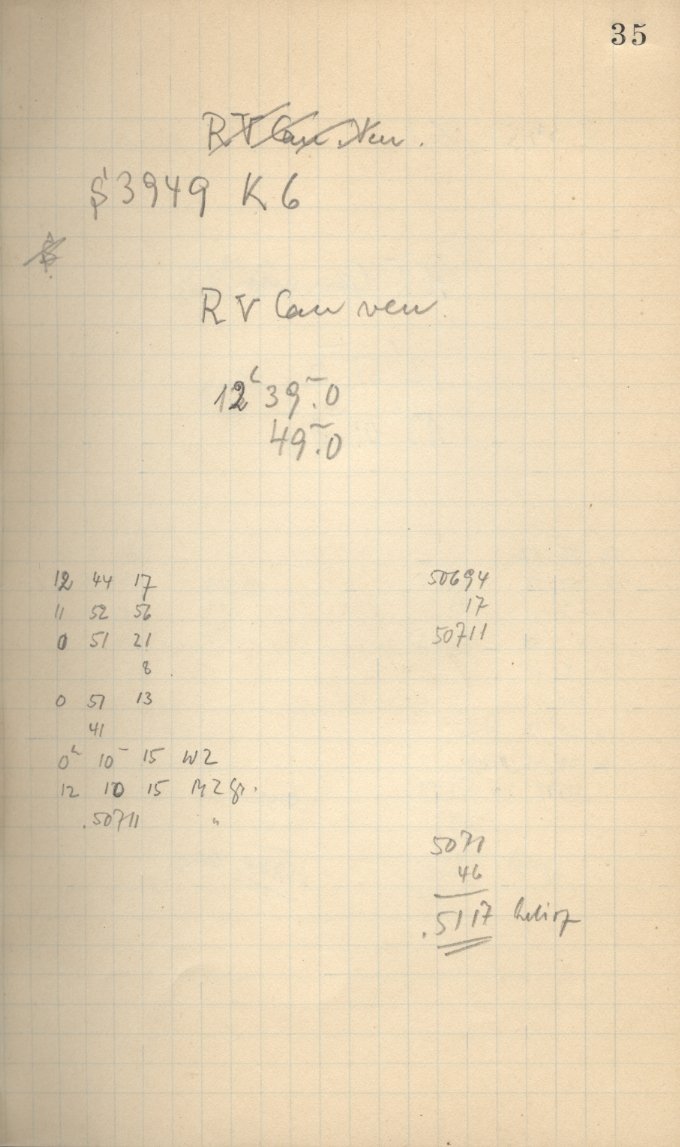 35
R V Can. Ven.
S 3949 K 6
R V Can ven.
12 39.0
49.0
12 44 17
11 52 56
0 51 21
8
0 51 13
41
0 10 15 WZ
12 10 15 MZGr.
.50711 "
50694
17
50711
5071
46
.5117 helioz